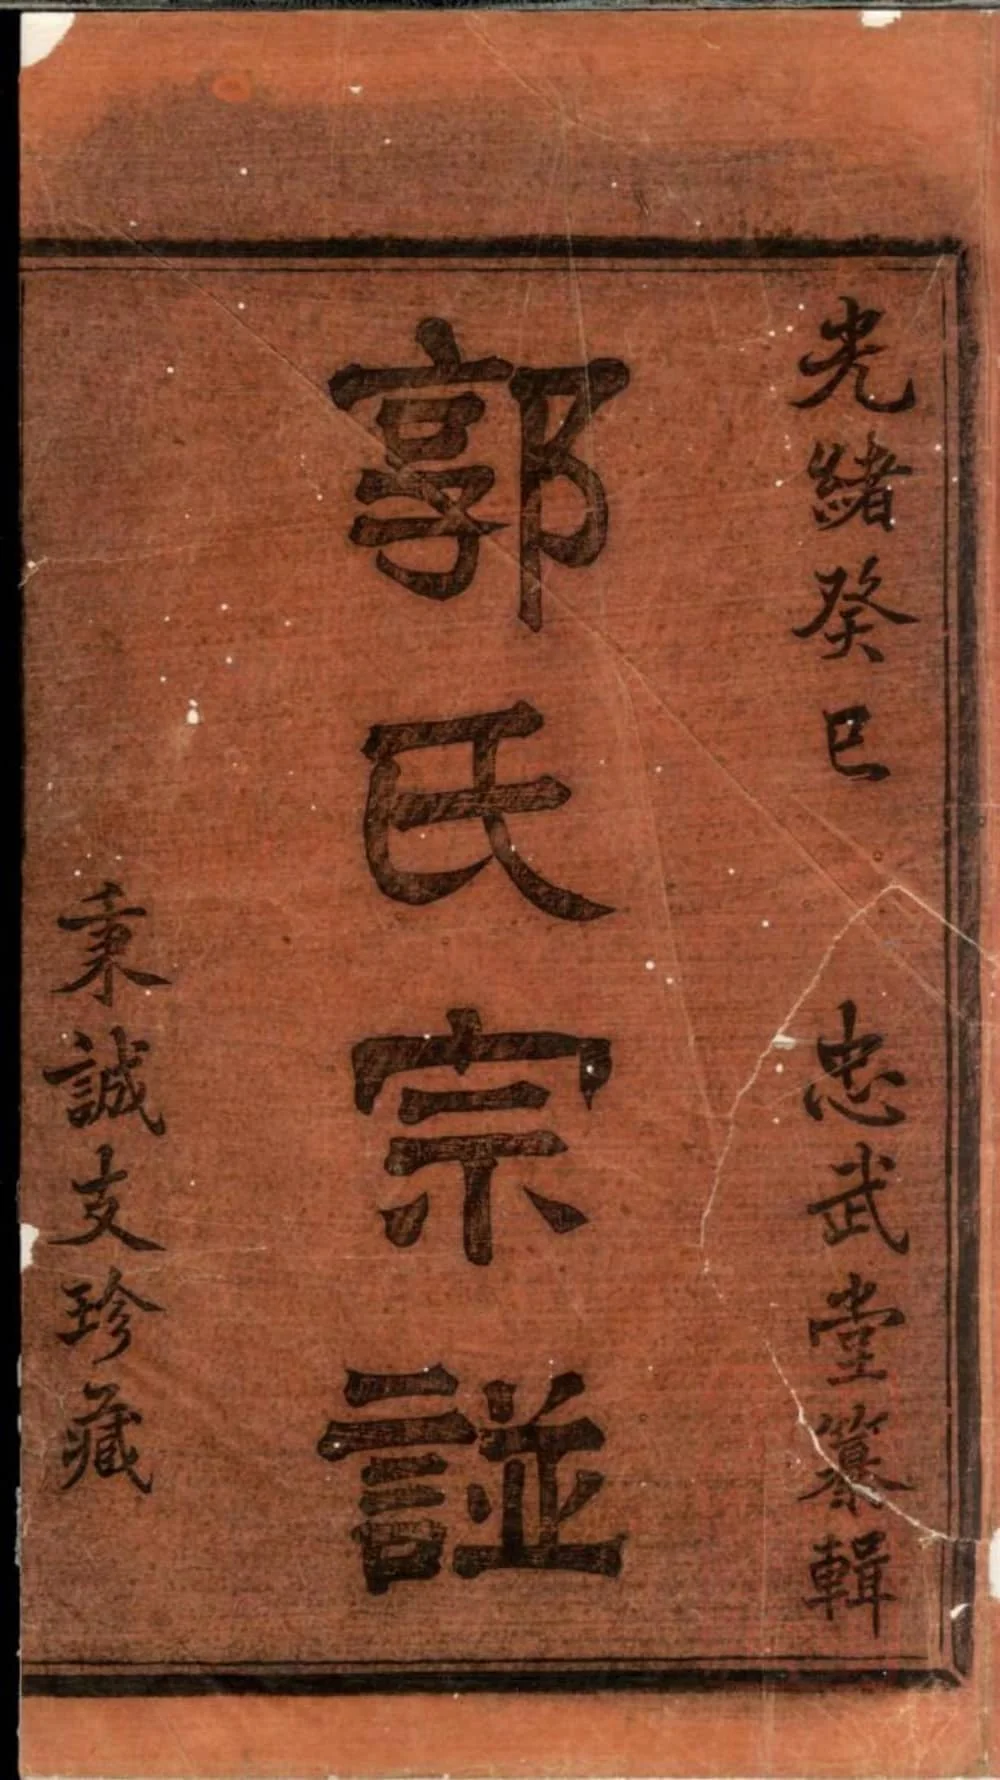 光緒癸巳 忠武堂纂輯
郭氏宗諩
秉誠支珍藏